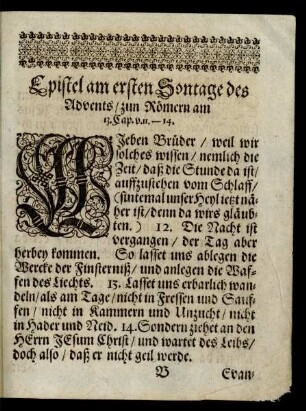 Epistel am ersten Sontage des
Advents / zun Römern am
13. Cap. v. 11. — 14.
WJeben Brüder / weil wir
solches wissen / nemlich die
Zeit / daß die Stunde da ist /
auffzustehen vom Schlaff /
(sintemal unser Heyl ietzt nä-
her ist / denn da wirs gläub-
ten.) 12. Die Nacht ist
vergangen / der Tag aber
herbey kommen. So lasset uns ablegen die
Wercke der Finsterniß / und anlegen die Waf-
fen des Liechts. 13. Lasset uns erbarlich wan-
deln / als am Tage / nicht in Fressen und Sauf-
fen / nicht in Kammern und Unzucht / nicht
in Hader und Neid. 14. Sondern ziehet an den
HErrn JEsum Christ / und wartet des Leibs /
doch also / daß er nicht geil werde.
B Evan-